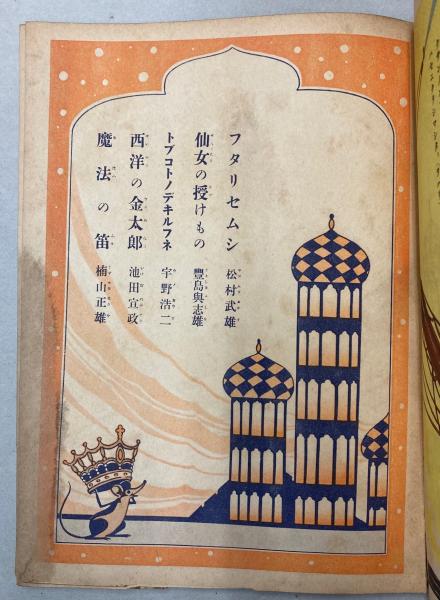 フタリセムシ 松村武雄
仙女の授けもの 豐島與志雄
トブコトノデキルフネ 宇野浩二
西洋の金太郎 池田宣政
魔法の笛 楠山正雄